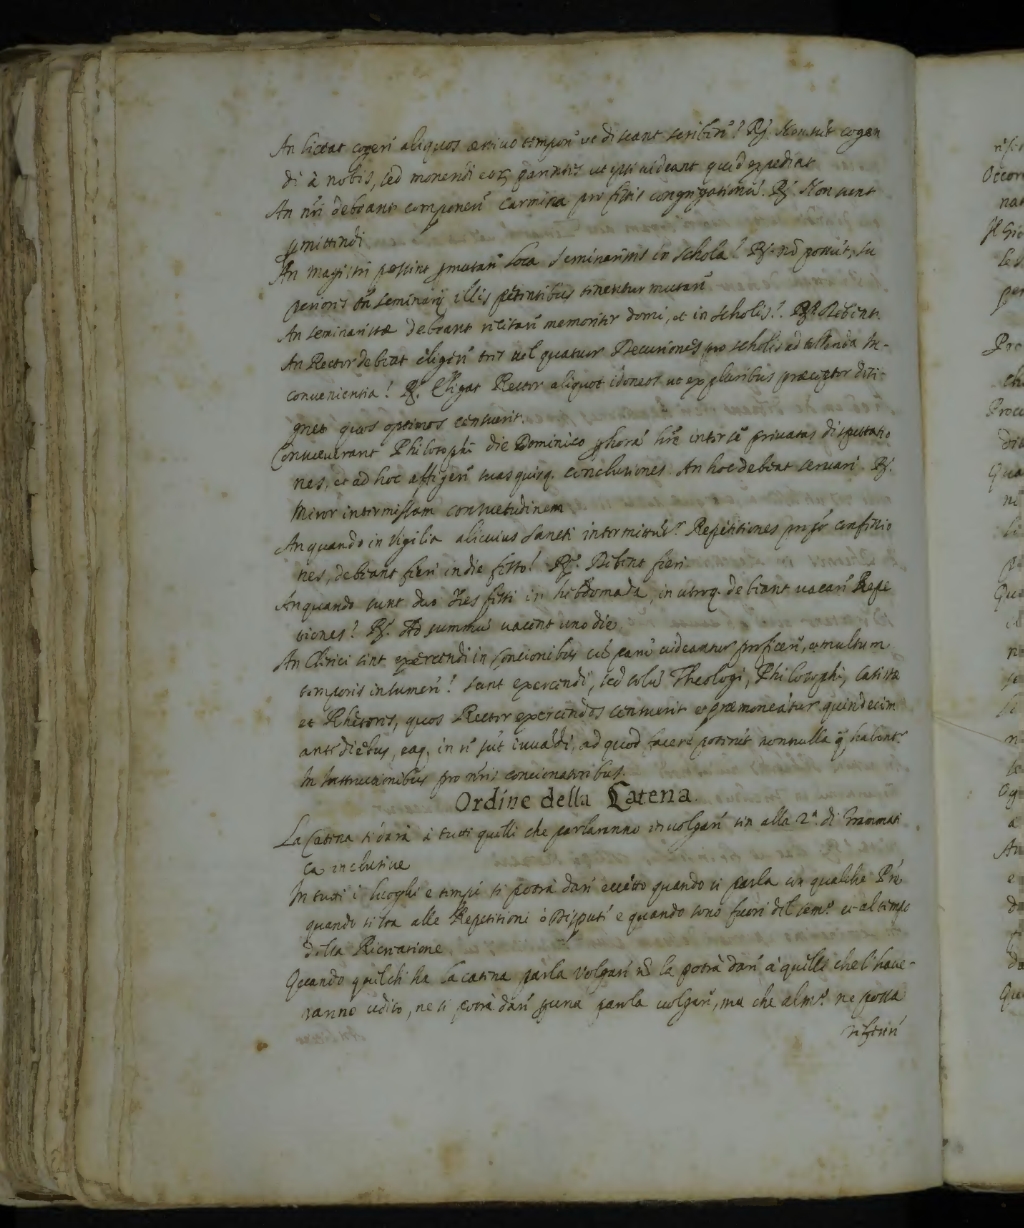 An liceat cogere aliquos æstivo tempore ut discant scribere? R. Non sunt cogen
di à nobis, sed monendi eorum parentes ut ipsi videant quid expediat
An nri debeant componere carmina pro festis congregationū? R. Non sunt
pmittendi
An magistri possint pmutare loca seminariis in schola? R. nō possūt, su
perioris seminarij illis petentibus tenetur mutare
An seminaristæ debeant recitare memoriter domi, et in scholis? R. Debent
An Rector debeat eligere tres vel quatuor Decuriones pro scholis ad tollenda in-
convenientia? R. Eligat Rector aliquot idoneos, ut ex pluribus præceptor deli-
gnet quos optimos censuerit.
Consueverant Philosophi die Dominico hrē inter se privatas disputatio
nes, et ad hoc affigere suas quisq. conclusiones. An hoc debeat servari. R.
Miror intermissam consuetudinem
An quando in Vigilia alicuius sancti intermittūt Repetitiones confessio
nes, debeant fieri in die festo? R. Debent fieri
An quando sunt duo dies festi in hebdomada, in utroq. debeant vacare Repe
tiones? R. Ad summū vacent uno die
An Clerici sint exercendi in concionibus cū parū videantur proficere, et multum
temporis insumere? sunt exercendi, sed solū Theologi, Philosophi, casistæ
et Rhetores, quos Rector exercendos censuerit et præmoneātur quindecim
ante diebus, in sūt iuvādi, ad quod facere poterūt nonnulla q̄ habent
In Instructionibus pro nris concionatoribus.
Ordine della Catena
La Catena si darà à tutti quelli che parlaranno in volgare sin alla 2ª di Grammati
ca inclusive
In tutti i luoghi e tempi si potrà dare eccetto quando si parla con qualche Pre
quando si sta alle Repetitioni ò Dispute e quando sono fuori del sem.º et al tempo
della Ricreatione
Quando quel ch' ha la catena parla volgare nō la potrà dare à quelli che l'have-
ranno udito, ne si potrà dare una parola volgare, ma che alm.º ne possa
riferire